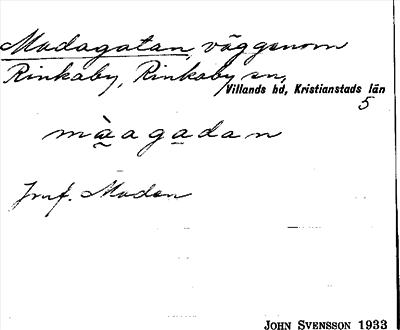 Madagatan, väggenom
Rinkaby, Rinkaby sn,
Villands hd, Kristianstads län
5
màagadan
Jmf. Maden
JOHN SVENSSON 1933